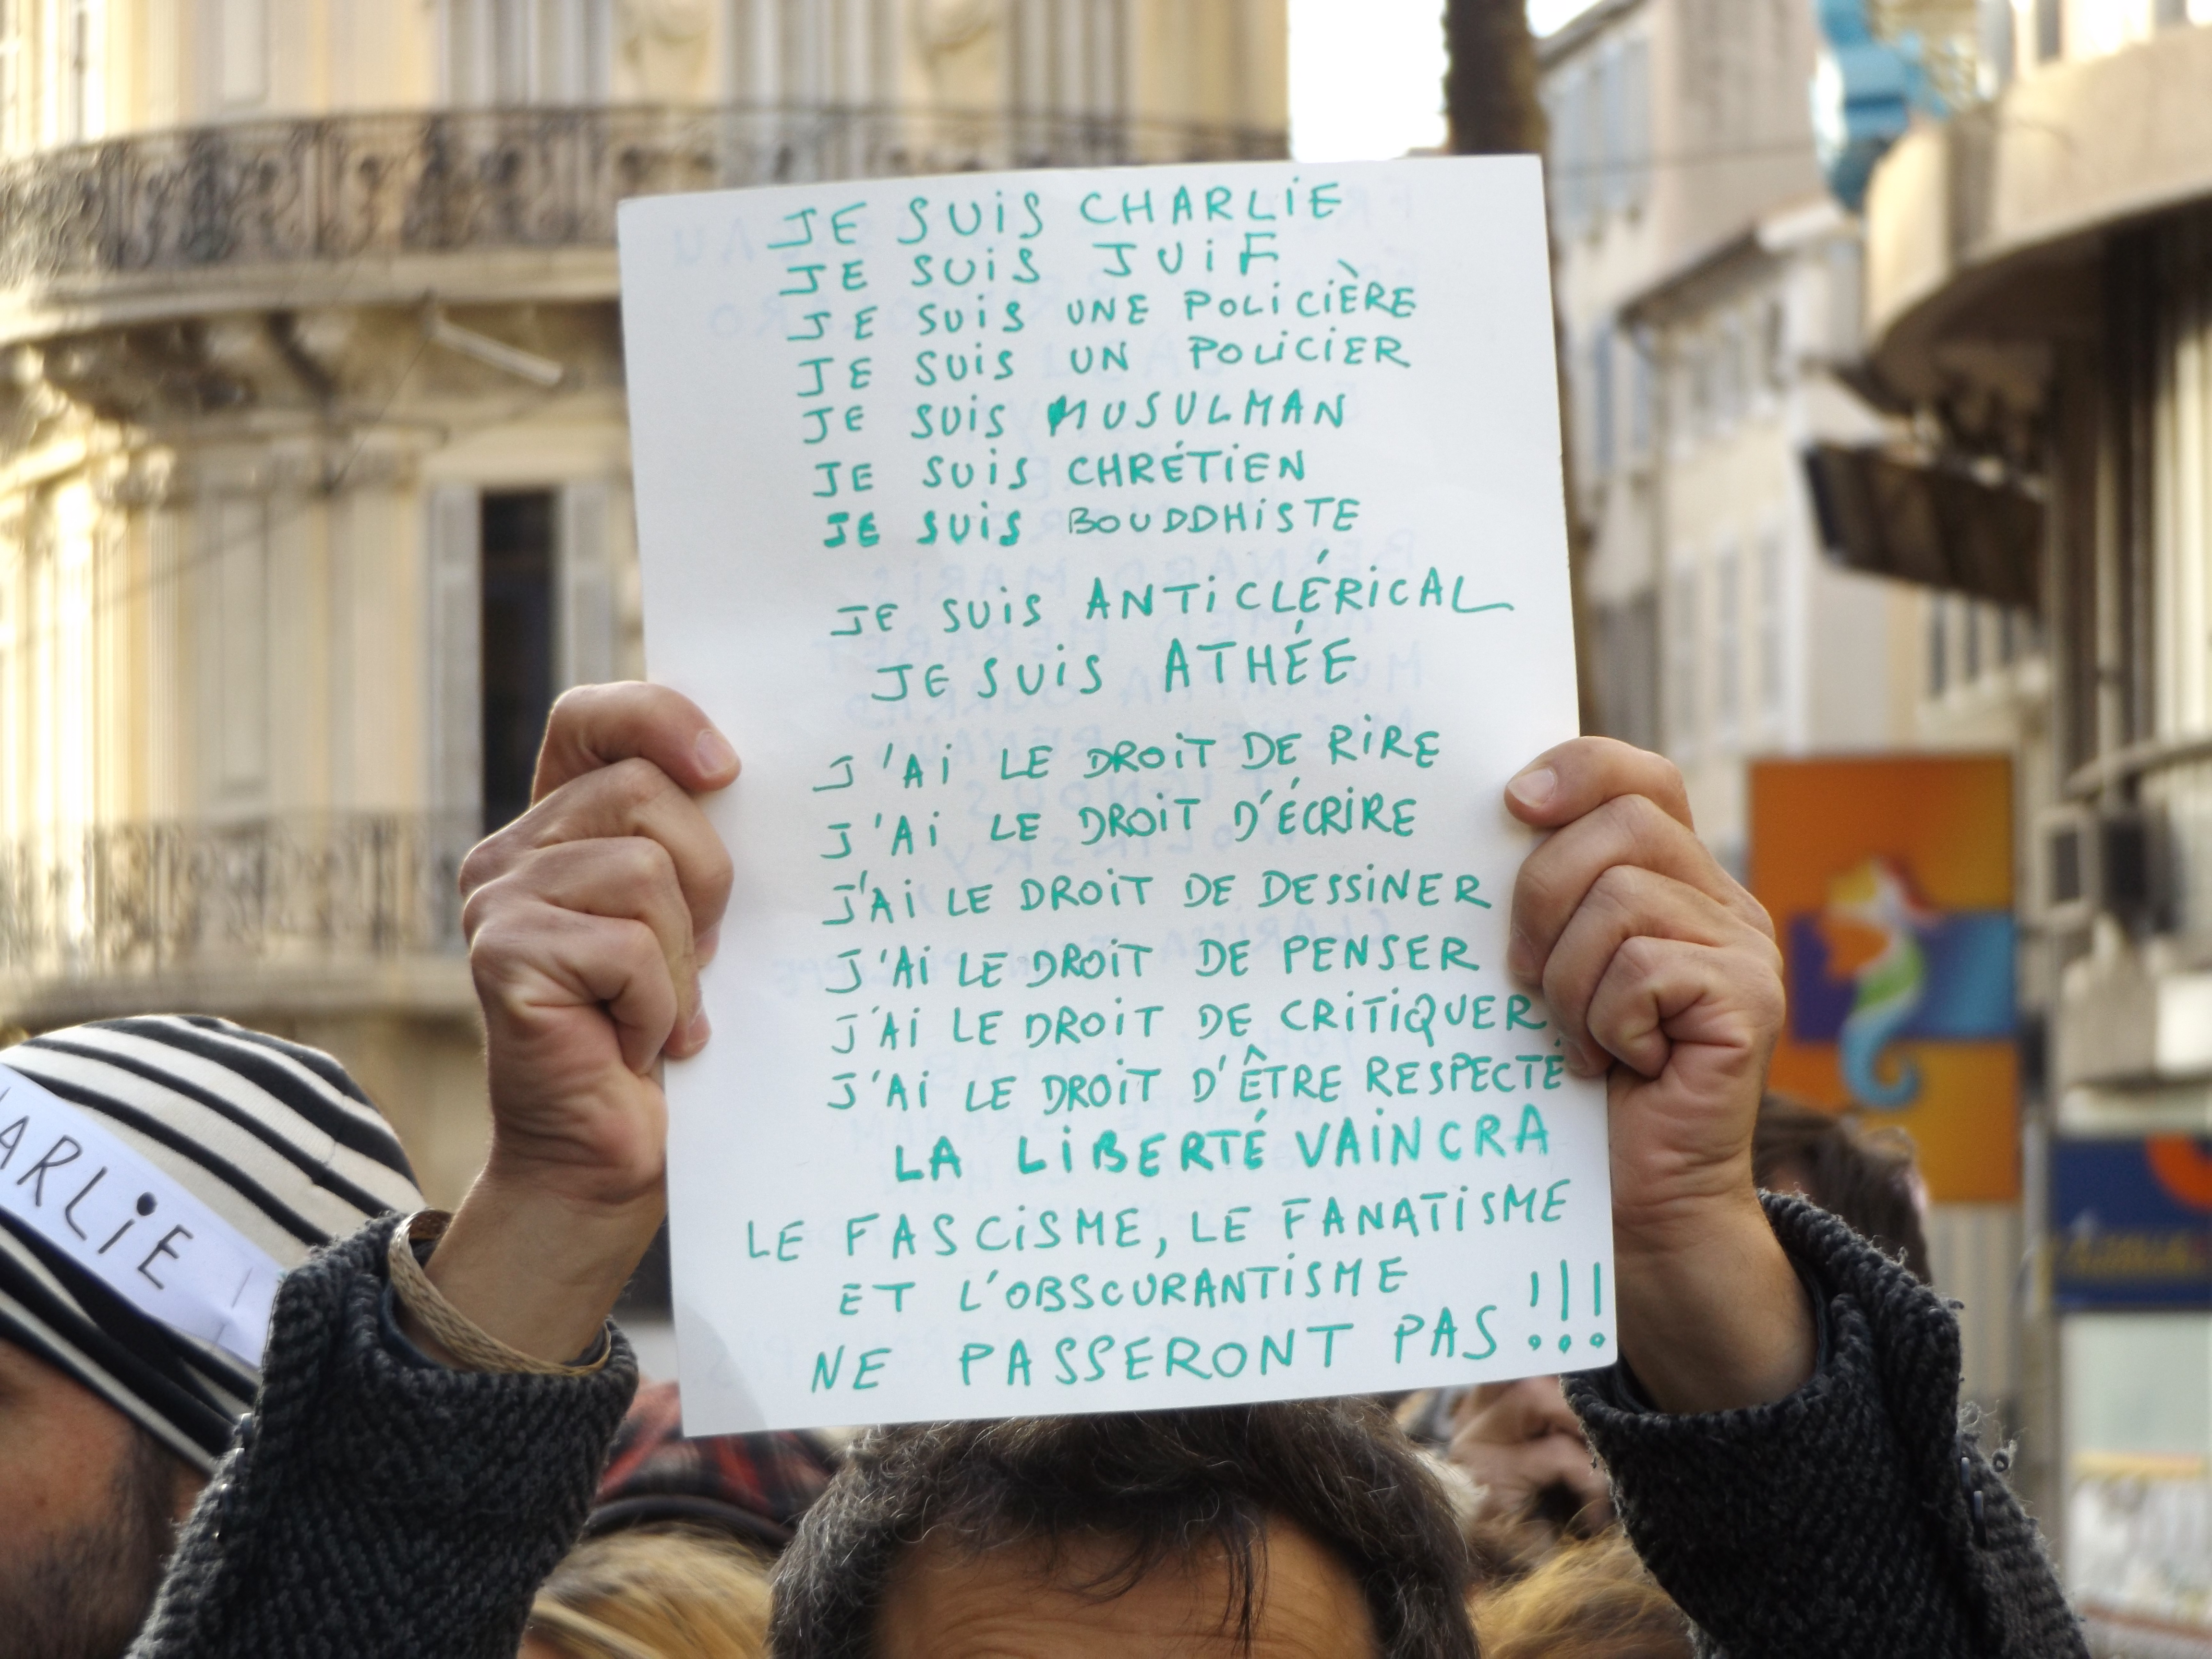 JE SUiS CHARLiE
JE SUiS JUiF
JE SUiS UNE POLiCiÈRE
JE SUiS UN POLiCiER
JE SUiS MUSULMAN
JE SUiS CHRÉTiEN
JE SUiS BOUDDHiSTE
JE SUiS ANTiCLÉRiCAL
JE SUiS ATHÉE
J'Ai LE DROiT DE RiRE
J'Ai LE DROiT D'ÉCRiRE
J'Ai LE DROiT DE DESSiNER
J'Ai LE DROiT DE PENSER
J'Ai LE DROiT DE CRiTiQUER
J'Ai LE DROiT D'ÊTRE RESPECTÉ
LA LiBERTÉ VAiNCRA
LE FASCiSME, LE FANATiSME
ET L'OBSCURANTiSME
NE PASSERONT PAS !!!
ARLiE